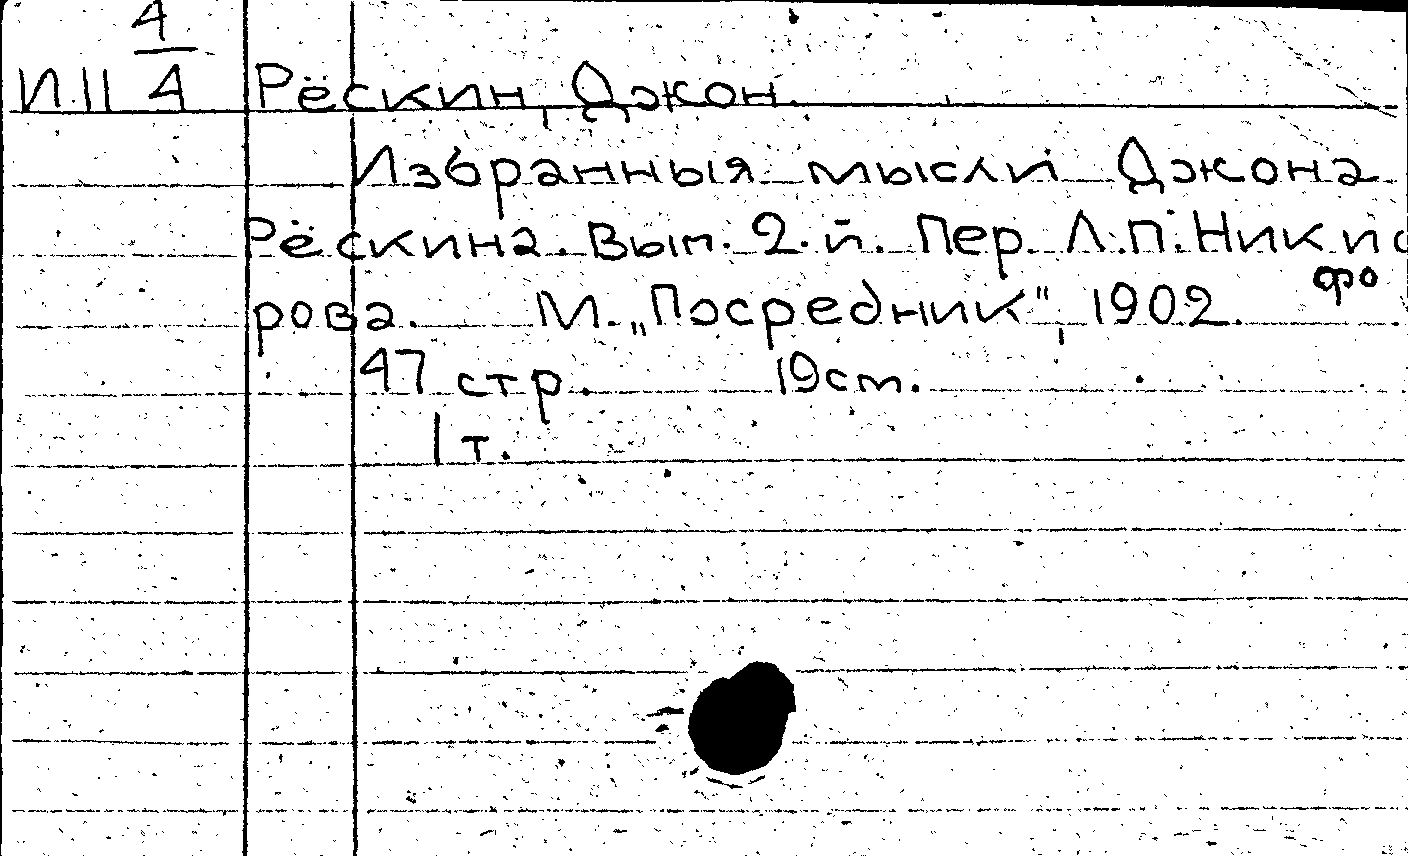 4
И.II 4 Рёскин, Джон.
Избранныя мысли Джона
Рёскина. Вып. 2-й. Пер. Л.П. Никис
фо
рова. М. „Посредник", 1902.
47 стр. 19 cm.
1 т.